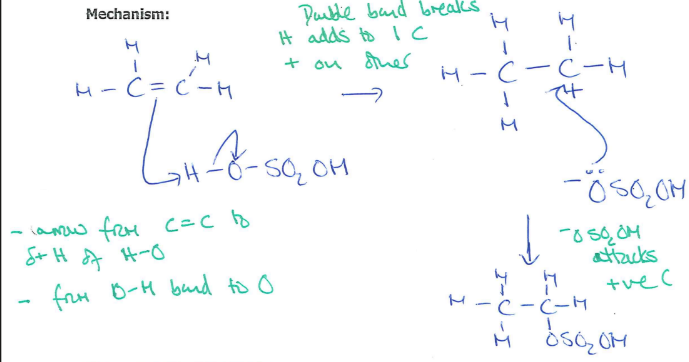 Mechanism:
Double bond breaks
H adds to 1 C
+ on other
H
H
H - C = C - H
H - O - SO₂OH
H
H
H - C - C - H
+
H
- :OSO₂OH
- arrow from C=C to
δ+ H of H-O
- from O-H bond to O
-OSO₂OH
attacks
+ve C
H
H
H - C - C - H
H
OSO₂OH